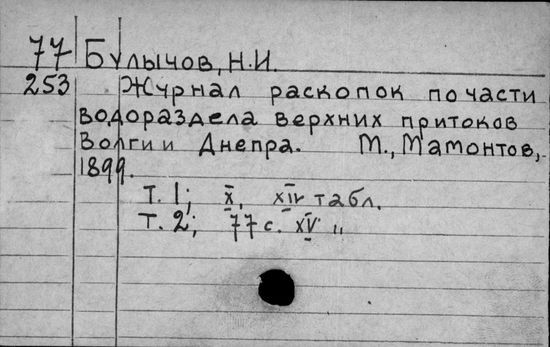 77 Булычов, Н.И.
253 Журнал раскопок по части
водораздела верхних притоков
Волги и Днепра. М., Мамонтов,
1899.
Т. 1; X, XIV табл.
Т. 2; 77 с. XV "